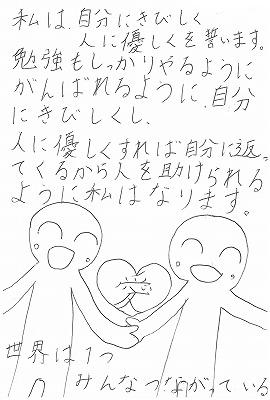 私は、自分にきびしく
人に優しくを誓います。
勉強もしっかりやるように
がんばれるように、自分
にきびしくし、
人に優しくすれば自分に返っ
てくるから人を助けられる
ように私はなります。
世界は1つ
みんなつながっている